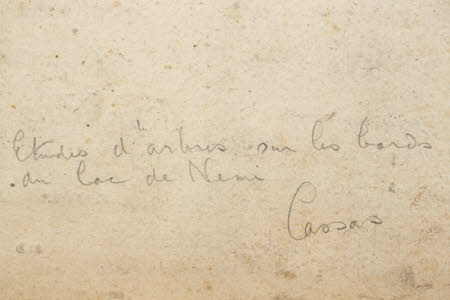 Etudes d'arbres sur les bords
du lac de Nemi
Cassas